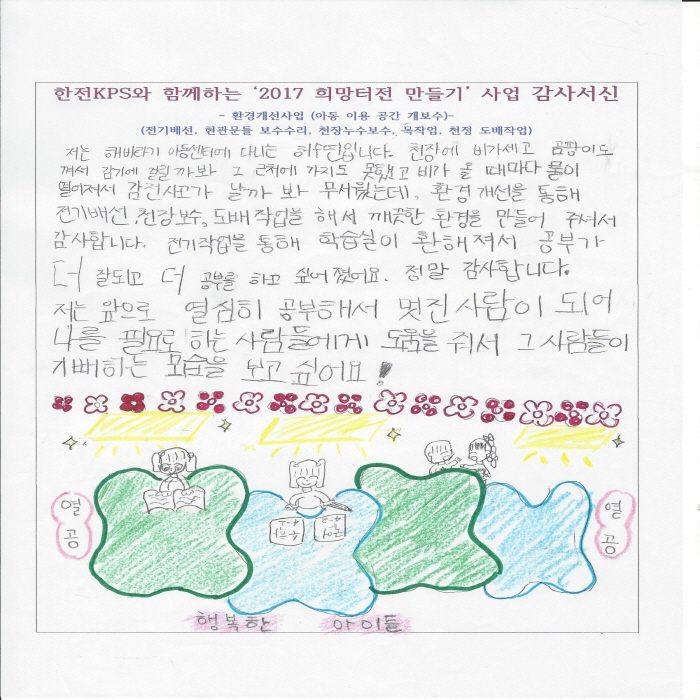 한전KPS와 함께하는 '2017 희망터전 만들기' 사업 감사서신
- 환경개선사업 (아동 이용 공간 개보수)-
(전기배선, 현관문틀 보수수리, 천장누수보수, 목작업, 천정 도배작업)
저는 해바라기 아동센터에 다니는 허수연입니다. 천장에 비가새고 곰팡이도
껴서 감기에 걸릴 까봐 그 근처에 가지도 못했고 비가 올 때마다 물이
떨어져서 감전사고가 날까 봐 무서웠는데. 환경개선을 통해
전기배선, 천장보수, 도배작업을 해서 깨끗한 환경을 만들어 주셔서
감사합니다. 전기작업을 통해 학습실이 환해져서 공부가
더 잘되고 더 공부를 하고 싶어졌어요. 정말 감사합니다.
저는 앞으로 열심히 공부해서 멋진사람이 되어
나를 필요로 하는 사람들에게 도움을 줘서 그 사람들이
기뻐하는 모습을 보고 싶어요!
열공
열공
행복한 아이들